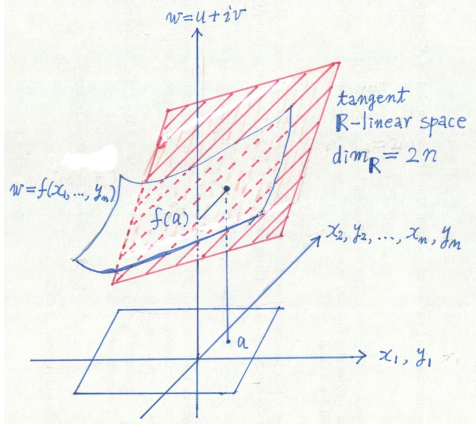 w=u+iv
tangent
R-linear space
dim_R = 2n
w=f(x₁,...,yₙ)
f(a)
x₂,y₂,...,xₙ,yₙ
a
x₁,y₁